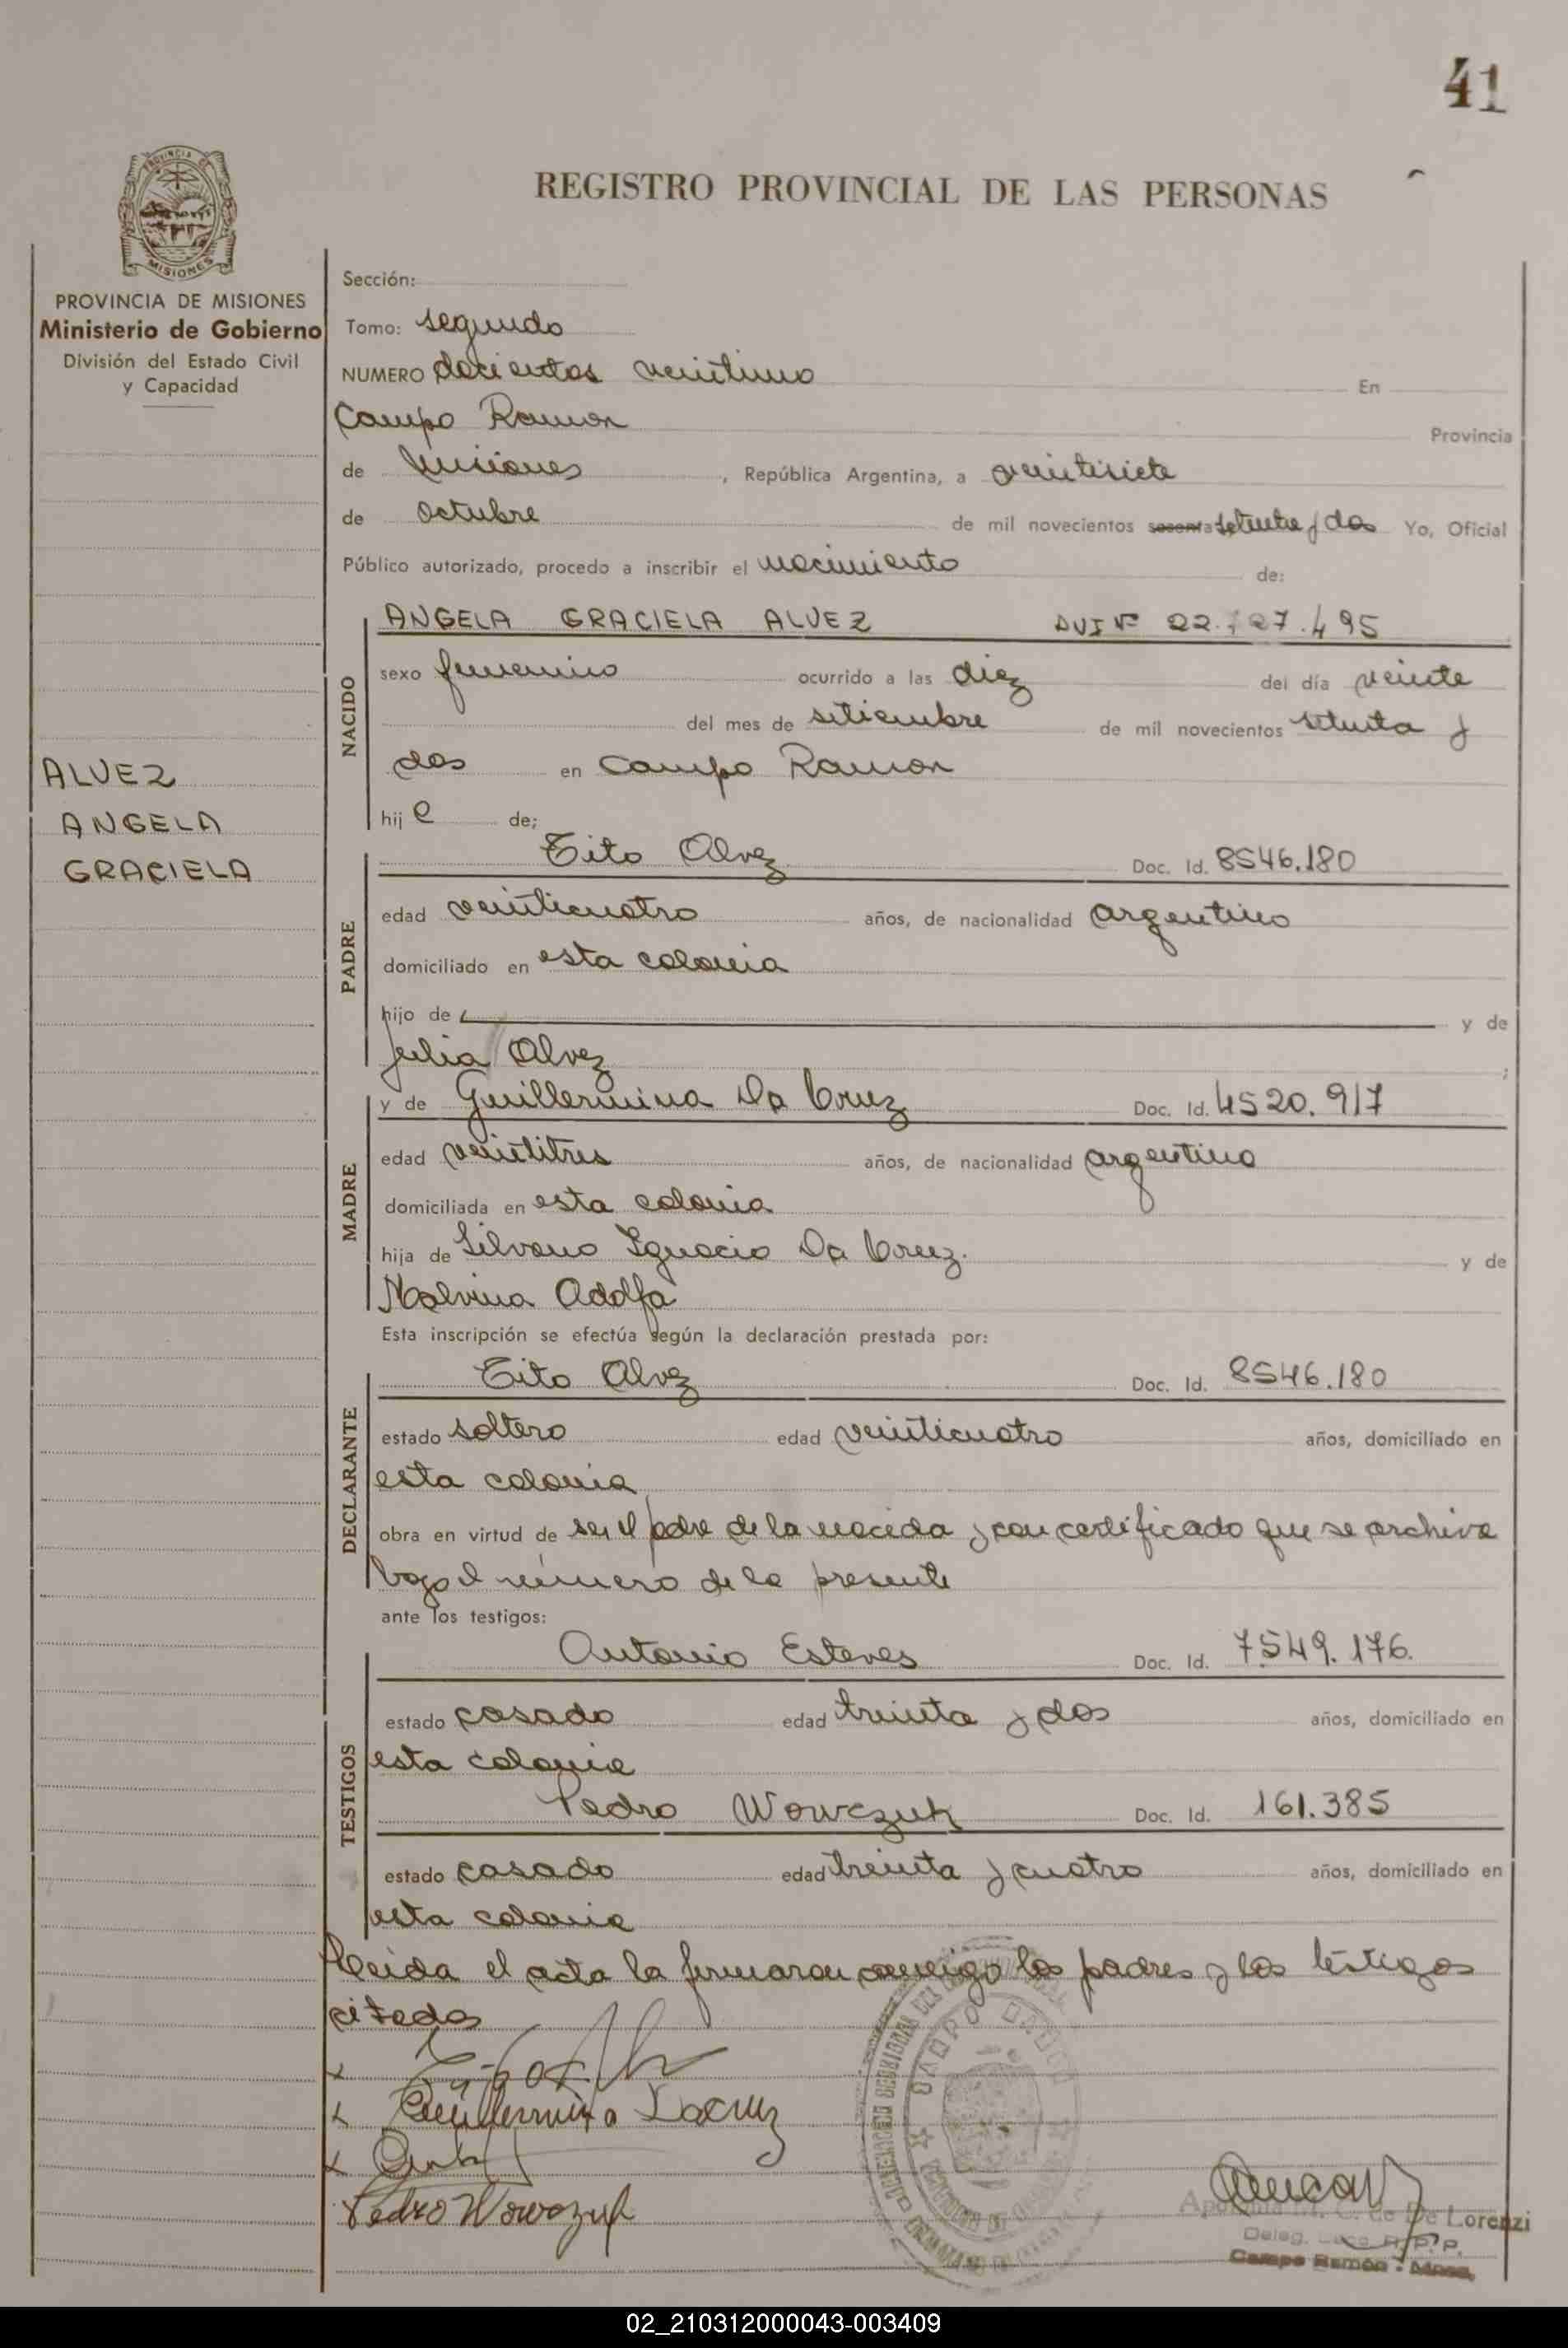 41
REGISTRO PROVINCIAL DE LAS PERSONAS
PROVINCIA DE MISIONES
Ministerio de Gobierno
División del Estado Civil
y Capacidad
ALVEZ
ANGELA
GRACIELA
Sección:
Tomo: segundo
NUMERO docientos veintiuno En
Campo Ramon Provincia
de Misiones, República Argentina, a veintisiete
de octubre de mil novecientos sesenta setenta y dos Yo, Oficial
Público autorizado, procedo a inscribir el nacimiento de:
NACIDO
ANGELA GRACIELA ALVEZ DNI Nº 22.727.495
sexo femenino ocurrido a las diez del día veinte
del mes de setiembre de mil novecientos setenta y
dos en Campo Ramon
hij a de;
PADRE
Tito Alvez Doc. Id. 8546.180
edad veinticuatro años, de nacionalidad argentino
domiciliado en esta colonia
hijo de y de
Julia Alvez ;
MADRE
y de Guillermina Da Cruz Doc. Id. 4520.917
edad veintitres años, de nacionalidad argentina
domiciliada en esta colonia
hija de Silvano Ignacio Da Cruz. y de
Malvina Adolfa
Esta inscripción se efectúa según la declaración prestada por:
DECLARANTE
Tito Alvez Doc. Id. 8546.180
estado soltero edad veinticuatro años, domiciliado en
esta colonia
obra en virtud de ser el padre de la nacida y con certificado que se archiva
bajo el número de la presente
ante los testigos:
TESTIGOS
Antonio Esteves Doc. Id. 7549.176.
estado casado edad treinta y dos años, domiciliado en
esta colonia
Pedro Wowczuk Doc. Id. 161.385
estado casado edad treinta y cuatro años, domiciliado en
esta colonia
Leida el acta la firmaron conmigo los padres y los testigos
citados
Guillermina Dacruz
Pedro Wowczuk
M. C. de De Lorenzi
Deleg. R. P. P.
Campo Ramón - Mnes.
02_210312000043-003409